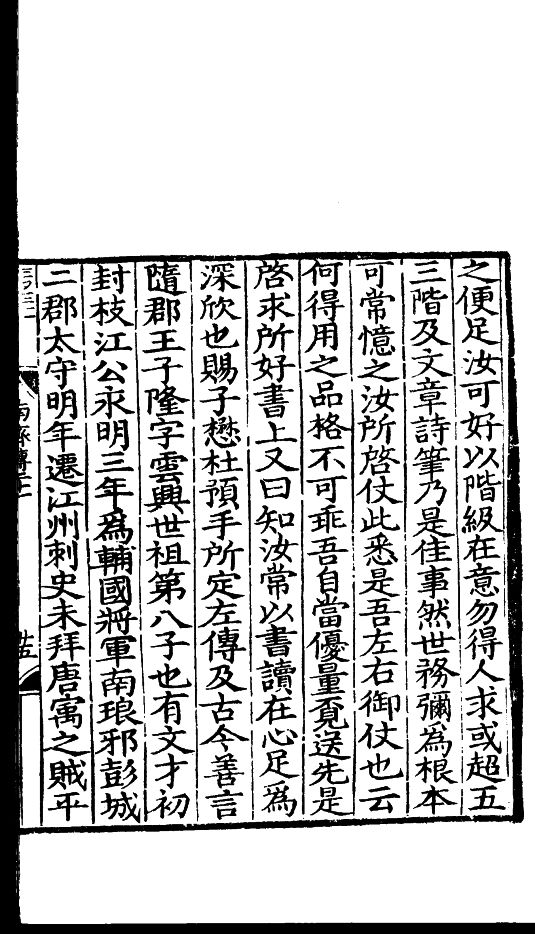 之便足汝可好以階級在意勿得人求或超五
三階及文章詩筆乃是佳事然世務彌爲根本
可常憶之汝所啓仗此悉是吾左右御仗也云
何得用之品格不可乖吾自當優量覓送先是
啓求所好書上又曰知汝常以書讀在心足爲
深欣也賜子懋杜預手所定左傳及古今善言
隨郡王子隆字雲興世祖第八子也有文才初
封枝江公永明三年爲輔國將軍南琅邪彭城
二郡太守明年遷江州刺史未拜唐寓之賊平
廿五